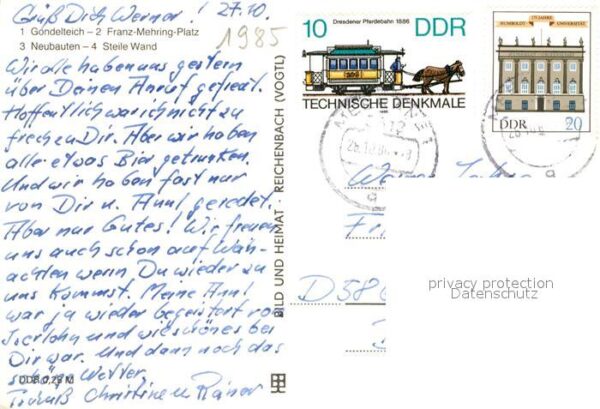 Grüß Dich Werner! 27.10.
1985
1 Gondelteich – 2 Franz-Mehring-Platz
3 Neubauten – 4 Steile Wand
Wir alle haben uns gestern
über Deinen Anruf gefreut.
Hoffentlich war ich nicht zu
frech zu Dir. Aber wir haben
alle etwas Bier getrunken.
Und wir haben fast nur
von Dir u. Anni geredet.
Aber nur Gutes! Wir freuen
uns auch schon auf Weih-
nachten wenn Du wieder zu
uns kommst. Meine Anni
war ja wieder begeistert von
Iserlohn und wie schönes bei
Dir war. Und dann noch das
schöne Wetter.
DDR 0,25 M
Gruß Christine u. Rainer
BILD UND HEIMAT · REICHENBACH (VOGTL)
Dresdener Pferdebahn 1886
10 DDR
TECHNISCHE DENKMALE
175 JAHRE
HUMBOLDT UNIVERSITÄT
DDR 20
D 586
privacy protection
Datenschutz